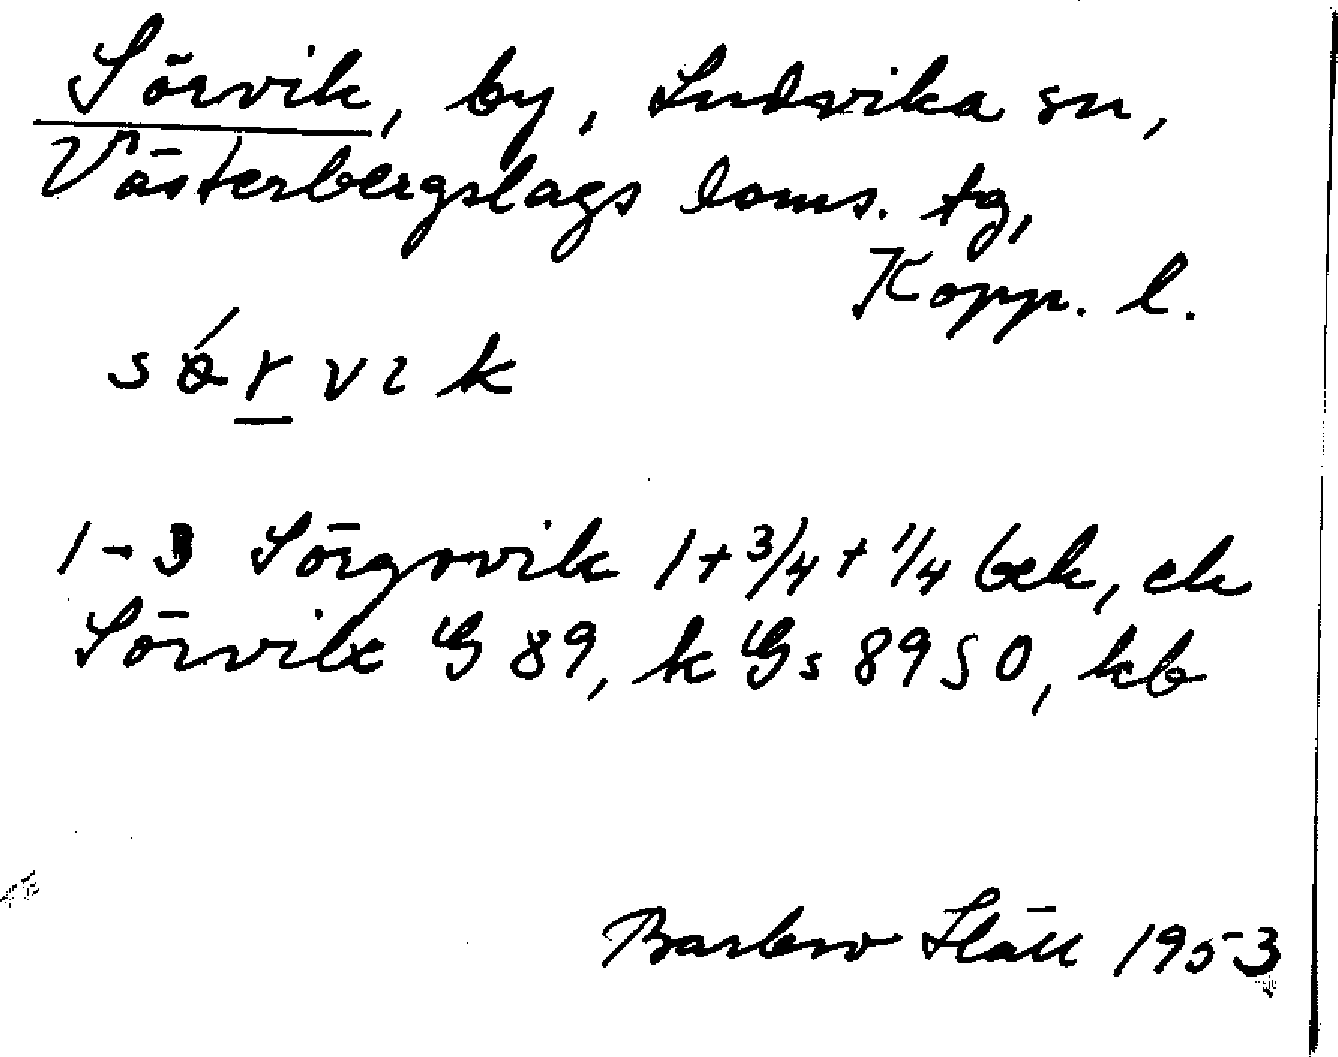 Sörvik, by, Ludvika sn,
Västerbergslags doms. tg,
Kopp. l.
1-3 Sörgovik 1+3/4+1/4 bek, ek
Sörvik G 89, k Gs 8950, kb
Slätt 1953